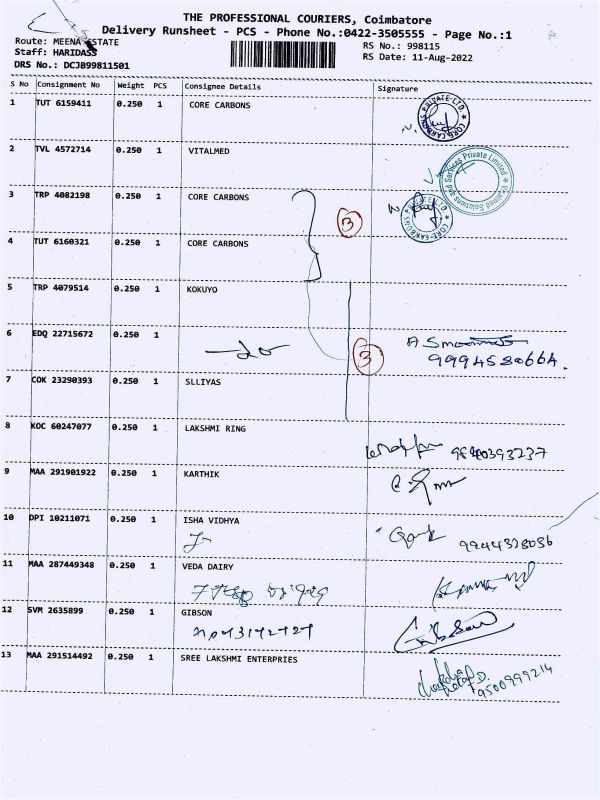 THE PROFESSIONAL COURIERS, Coimbatore
Delivery Runsheet - PCS - Phone No.:0422-3505555 - Page No.:1
Route: MEENA ESTATE
Staff: HARIDASS
DRS No.: DCJB99811501
RS No.: 998115
RS Date: 11-Aug-2022
S No Consignment No Weight PCS Consignee Details Signature
1 TUT 6159411 0.250 1 CORE CARBONS
2 TVL 4572714 0.250 1 VITALMED
3 TRP 4082198 0.250 1 CORE CARBONS
3
4 TUT 6160321 0.250 1 CORE CARBONS
5 TRP 4079514 0.250 1 KOKUYO
6 EDQ 22715672 0.250 1
3
9994580664.
7 COK 23290393 0.250 1 SLLIYAS
8 KOC 60247077 0.250 1 LAKSHMI RING
9840393237
9 MAA 291901922 0.250 1 KARTHIK
10 DPI 10211071 0.250 1 ISHA VIDHYA
11 MAA 287449348 0.250 1 VEDA DAIRY
12 SVM 2635899 0.250 1 GIBSON
13 MAA 291514492 0.250 1 SREE LAKSHMI ENTERPRIES
9500999214